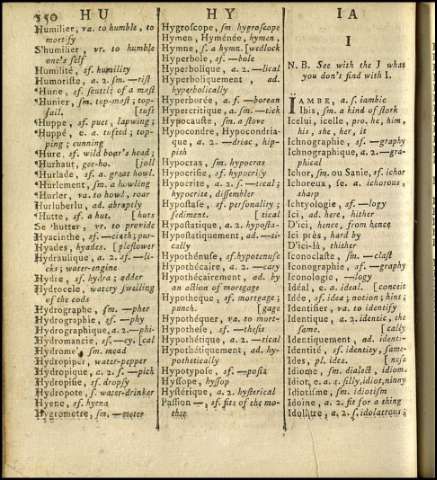 350 HU
Humilier, va. to humble, to
mortify
S'humilier, vr. to humble
one's self
Humilité, sf. humility
Humoriste, a. 2. sm.—rist
*Hune, sf. scuttle of a mast
*Hunier, sm. top-mast; top-
sail. [tuft
*Huppe, sf. puet, lapwing;
*Huppé, e. a. tufted; top-
ping; cunning
*Hure, sf. wild boar's head;
*Hurhaut, gee-ho. [joll
*Hurlade, sf. a great howl.
*Hurlement, sm. a howling
*Hurler, va. to howl, roar
Hurluberlu, ad. abruptly
*Hutte, sf. a hut. [huts
Se *hutter, vr. to provide
Hyacinthe, sf.—cinth; pur-
Hyades, hyades. [ple flower
Hydraulique, a. 2. sf.—li-
cks; water-engine
Hydre, sf. hydra; adder
Hydrocele, watery swelling
of the cods
Hydrographe, sm.—pher
Hydrographie, sf.—phy
Hydrographique, a. 2.—phi-
Hydromancie, sf.—cy. [cal
Hydromel, sm. mead
Hydropiper, water-pepper
Hydropique, a. 2. s.—pick
Hydropisie, sf. dropsy
Hydropote, s. water-drinker
Hyene, sf. hyena
Hygrometre, sm.—meter
HY
Hygroscope, sm hygroscope
Hymen, Hyménée, hymen.
Hymne, s. a hymn. [wedlock
Hyperbole, sf.—bole
Hyperbolique, a. 2.—lical
Hyperboliquement, ad.
hyperbolically
Hyperborée, a. f.—borean
Hypercritique, a. sm.—tick
Hypocauste, sm. a stove
Hypocondre, Hypocondria-
que, a. 2.—driac, hip-
pish
Hypocras, sm. hypocras
Hypocrisie, sf. hypocrisy
Hypocrite, a. 2. s.—tical;
hypocrite, dissembler
Hypostase, sf. personality;
sediment. [tical
Hypostatique, a. 2. hyposta-
Hypostatiquement, ad.—ti-
cally
Hypothénuse, sf hypotenuse
Hypothécaire, a. 2.—cary
Hypothécairement, ad. by
an action of mortgage
Hypotheque, sf. mortgage;
punch. [gage
Hypothéquer, va. to mort-
Hypothese, sf.—thesis
Hypothétique, a. 2.—tical
Hypothétiquement, ad. hy-
pothetically
Hypotypose, sf.—posis
Hyssope, hyssop
Hystérique, a. 2. hysterical
Passion—, sf. fits of the mo-
ther
IA
I
N. B. See with the J what
you don't find with I.
IAMBE, a. f. iambic
Ibis, sm. a kind of stork
Icelui, icelle, pro. he, him,
his, she, her, it
Ichnographie, sf.—graphy
Ichnographique, a. 2.—gra-
phical
Ichor, sm. ou Sanie, sf. ichor
Ichoreux, se. a. ichorous,
sharp
Ichtyologie, sf.—logy
Ici, ad. here, hither
D'ici, hence, from hence
Ici près, hard by
D'ici-là, thither
Iconoclaste, sm.—clast
Iconographie, sf.—graphy
Iconologie,—logy
Idéal, e. a. ideal. [conceit
Idée, sf. idea; notion; hint;
Identifier, va. to identify
Identique, a. 2. identic, the
same. [cally
Identiquement, ad. identi-
Identité, sf. identity, same-
Ides, pl. ides. [ness
Idiome, sm. dialect, idiom.
Idiot, e. a. s. silly, idiot, ninny
Idiotisme, sm. idiotism
Idoine, a. 2. fit for a thing
Idolâtre, a. 2. s. idolatrous;